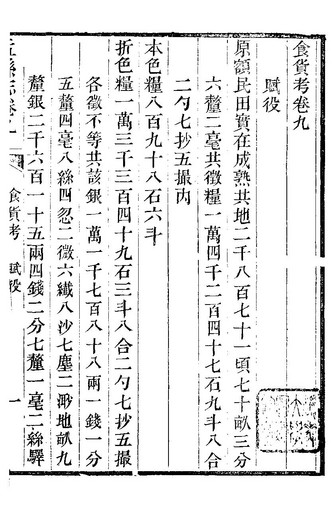 食貨考卷九
賦役
原額民田實在成熟共地二千八百七十一頃七十畝三分
六釐二毫共徵糧一萬四千二百四十七石九斗八合
二勺七抄五撮內
本色糧八百九十八石六斗
折色糧一萬三千三百四十九石三斗八合二勺七抄五撮
各徵不等共該銀一萬一千七百八十八兩一錢一分
五釐四毫八絲四忽二微六纖八沙七塵二渺地畝九
釐銀二千六百一十五兩四錢二分七釐一毫二絲驛
食貨考 賦役 一